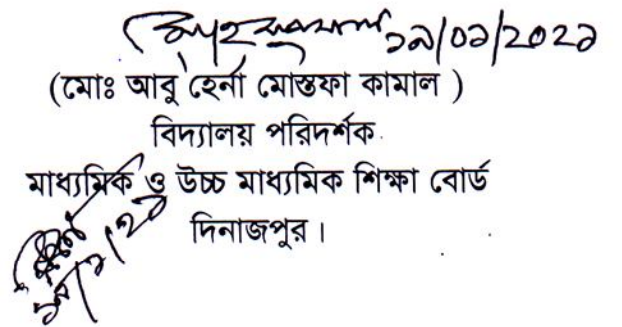 ১৯/০১/২০২১
(মোঃ আবু হের্না মোস্তফা কামাল )
বিদ্যালয় পরিদর্শক
মাধ্যমিক ও উচ্চ মাধ্যমিক শিক্ষা বোর্ড
দিনাজপুর।